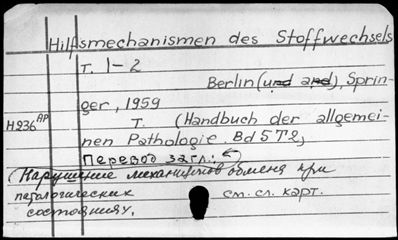 Hilfsmechanismen des Stoffwechsels
T. 1-2
Berlin (und and), Sprin-
ger, 1959
H236 AP
T. (Handbuch der allgemei-
nen Pathologie. Bd 5 T2)
Перевод загл.:
(Нарушение механизмов обмена при
патологических см. сл. карт.
состояниях.